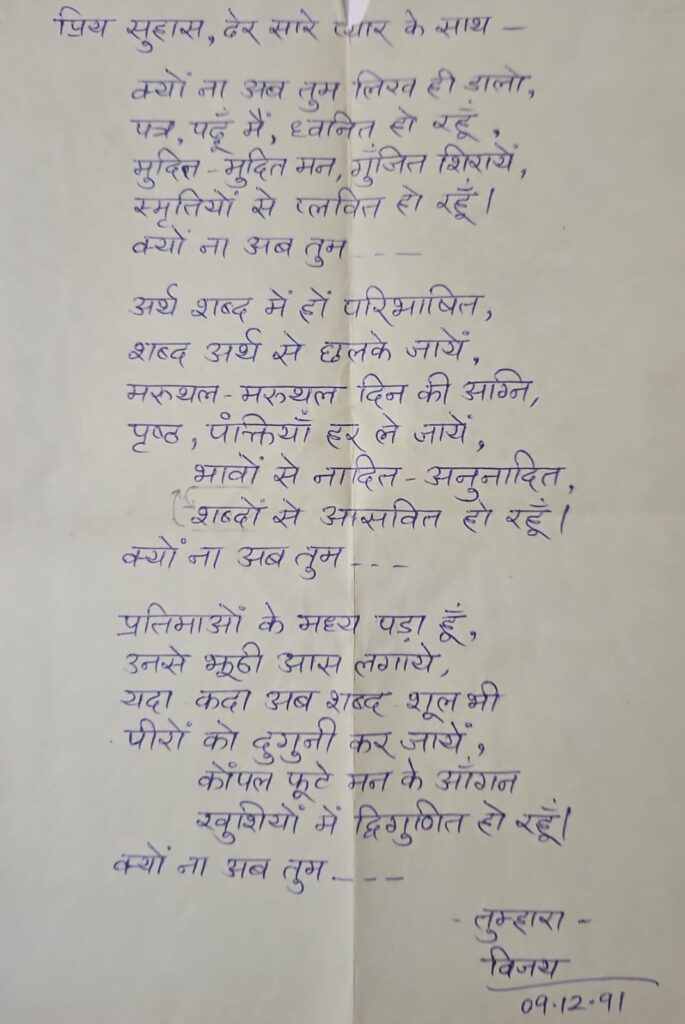 प्रिय सुहास, ढेर सारे प्यार के साथ –
क्यों ना अब तुम लिख ही डालो,
पत्र, पढ़ूँ मैं, ध्वनित हो रहूँ,
मुदित-मुदित मन, गुँजित शिरायें,
स्मृतियों से प्लवित हो रहूँ।
क्यों ना अब तुम ----
अर्थ शब्द में हों परिभाषित,
शब्द अर्थ से छलके जायें,
मरुथल-मरुथल दिन की अग्नि,
पृष्ठ, पंक्तियाँ हर ले जायें,
भावों से नादित-अनुनादित,
शब्दों से आसवित हो रहूँ।
क्यों ना अब तुम ---
प्रतिमाओं के मध्य पड़ा हूँ,
उनसे झूठी आस लगाये,
यदा कदा अब शब्द-शूल भी
पीरों को दुगुनी कर जायें,
कोंपल फूटे मन के आँगन
खुशियों में द्विगुणित हो रहूँ।
क्यों ना अब तुम ----
- तुम्हारा -
विजय
09.12.91